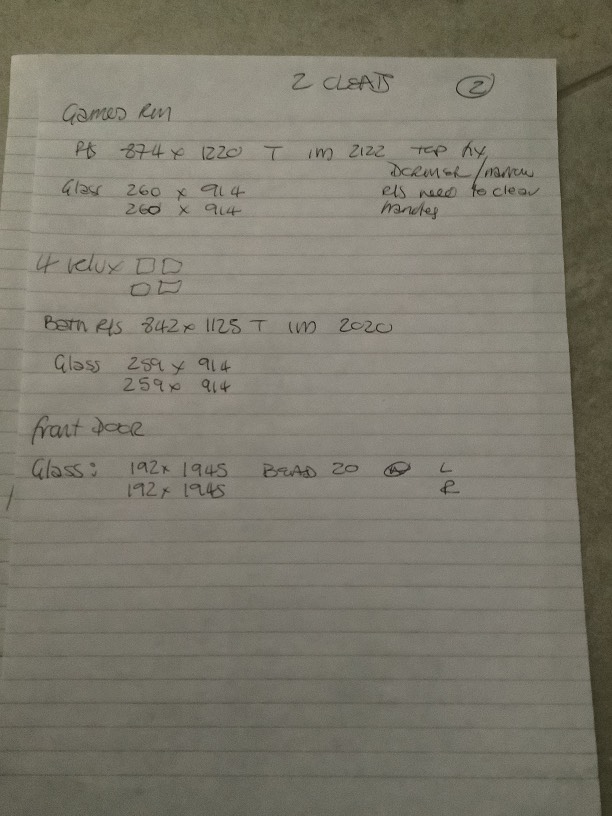 2 CLEATS 2
Games Rm
R/s 874 x 1220 T IM 2122 Top fix
DORMER / narrow
Glass 260 x 914 R/s need to clear
260 x 914 handles
4 velux
Both R/s 842 x 1125 T IM 2020
Glass 259 x 914
259 x 914
front DOOR
Glass: 192 x 1945 BEAD 20 L
192 x 1945 R